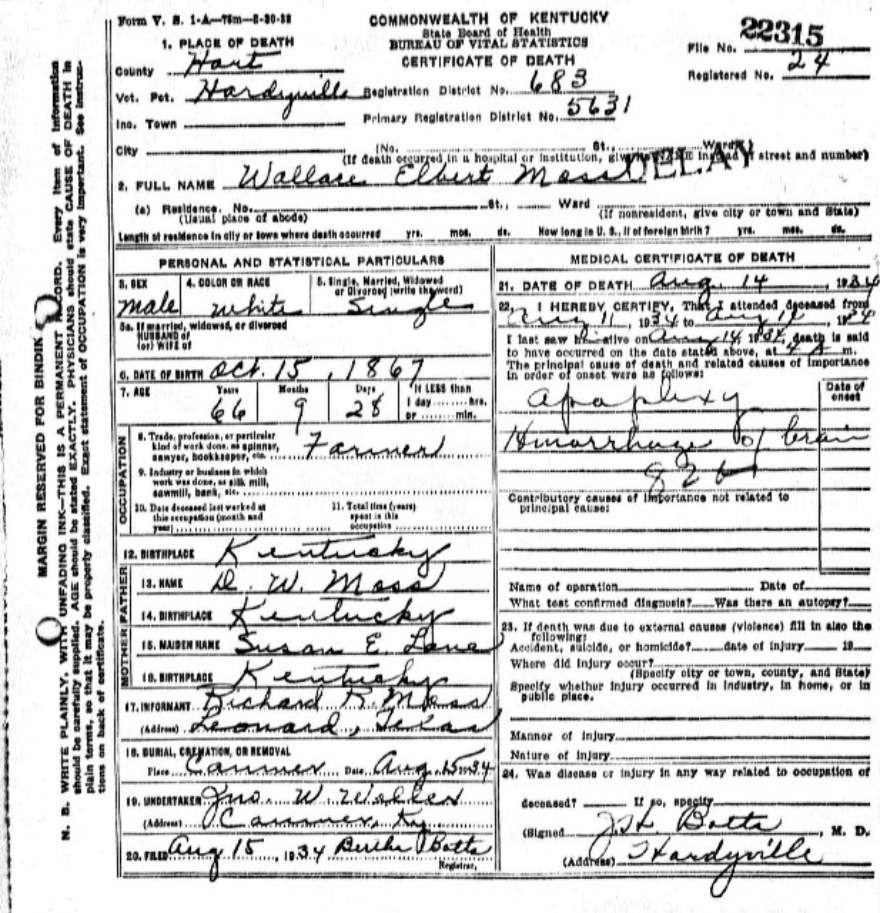 Form V. S. 1-A—75m—8-30-32
COMMONWEALTH OF KENTUCKY
State Board of Health
BUREAU OF VITAL STATISTICS
CERTIFICATE OF DEATH
22315
File No.
Registered No. 24
1. PLACE OF DEATH
County Hart
Vot. Pct. Hardyville Registration District No. 683
Inc. Town Primary Registration District No. 5631
City (No. St., Ward)
(If death occurred in a hospital or institution, give its NAME instead of street and number)
DELAY
2. FULL NAME Wallace Elbert Moss
(a) Residence. No. St., Ward
(Usual place of abode) (If nonresident, give city or town and State)
Length of residence in city or town where death occurred yrs. mos. ds. How long in U. S., if of foreign birth? yrs. mos. ds.
PERSONAL AND STATISTICAL PARTICULARS
3. SEX 4. COLOR OR RACE 5. Single, Married, Widowed
or Divorced (write the word)
Male White Single
5a. If married, widowed, or divorced
HUSBAND of
(or) WIFE of
6. DATE OF BIRTH Oct. 15, 1867
7. AGE Years Months Days If LESS than
66 9 28 1 day hrs.
or min.
OCCUPATION
8. Trade, profession, or particular
kind of work done, as spinner,
sawyer, bookkeeper, etc. Farmer
9. Industry or business in which
work was done, as silk mill,
sawmill, bank, etc.
10. Date deceased last worked at
this occupation (month and
year)
11. Total time (years)
spent in this
occupation
12. BIRTHPLACE Kentucky
FATHER
13. NAME D. W. Moss
14. BIRTHPLACE Kentucky
MOTHER
15. MAIDEN NAME Susan E. Lane
16. BIRTHPLACE Kentucky
17. INFORMANT Richard R. Moss
(Address) Leonard, Texas
18. BURIAL, CREMATION, OR REMOVAL
Place Canmer Date Aug. 15 1934
19. UNDERTAKER Jno. W. Waller
(Address) Canmer, Ky.
20. FILED Aug 15, 1934 Bertha Botts
Registrar.
MEDICAL CERTIFICATE OF DEATH
21. DATE OF DEATH Aug. 14, 1934
22. I HEREBY CERTIFY, That I attended deceased from
Aug 11, 1934 to Aug 14, 1934
I last saw him alive on Aug 14, 1934, death is said
to have occurred on the date stated above, at 4 A m.
The principal cause of death and related causes of importance
in order of onset were as follows:
Date of
onset
Apaplexy
Hmorrhage of brain
Contributory causes of importance not related to
principal cause:
Name of operation Date of
What test confirmed diagnosis? Was there an autopsy?
23. If death was due to external causes (violence) fill in also the
following:
Accident, suicide, or homicide? date of injury 19
Where did injury occur?
(Specify city or town, county, and State)
Specify whether injury occurred in industry, in home, or in
public place.
Manner of injury
Nature of injury
24. Was disease or injury in any way related to occupation of
deceased? If so, specify
(Signed J. H. Botts, M. D.
(Address) Hardyville
MARGIN RESERVED FOR BINDIN
N. B. WRITE PLAINLY, WITH UNFADING INK—THIS IS A PERMANENT RECORD. Every item of information
should be carefully supplied. AGE should be stated EXACTLY. PHYSICIANS should state CAUSE OF DEATH in
plain terms, so that it may be properly classified. Exact statement of OCCUPATION is very important. See instruc-
tions on back of certificate.